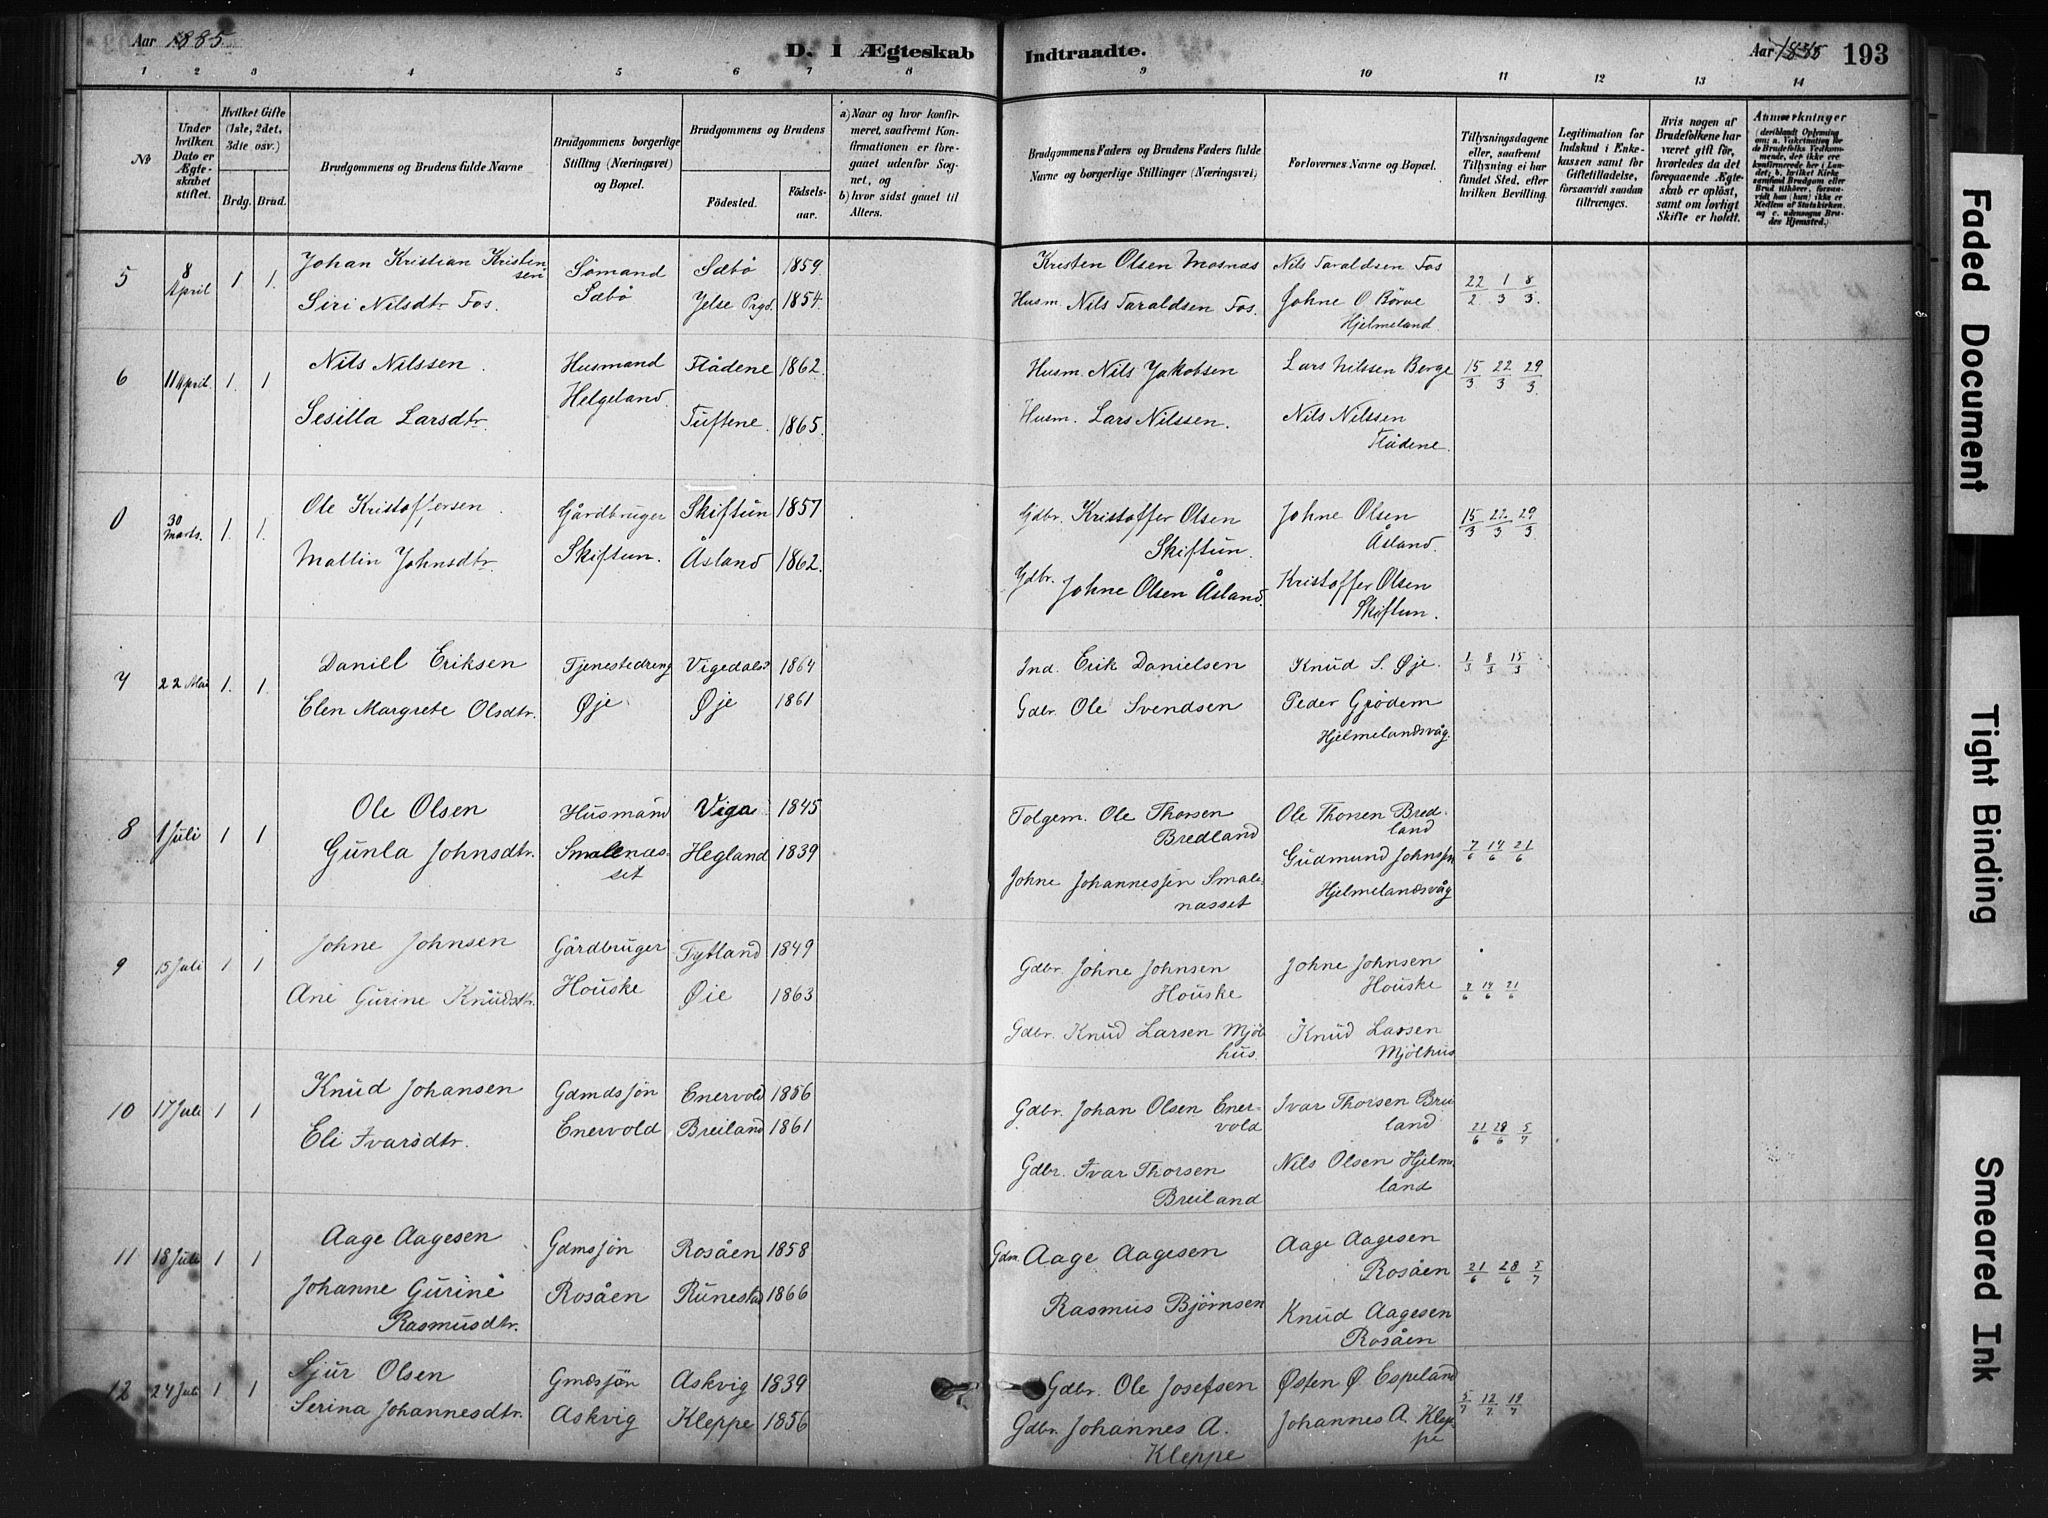 Aar 1885
D. I Ægteskab Indtraadte.
Aar 1885 193
1 2 3 4 5 6 7 8 9 10 11 12 13 14
No
Under hvilken Dato er Ægteskabet stiftet.
Hvilket Gifte (1ste, 2det, 3die osv.)
Brdg. Brud.
Brudgommens og Brudens fulde Navne
Brudgommens borgerlige Stilling (Næringsvei) og Bopæl.
Brudgommens og Brudens
Fødested.
Fødselsaar.
a) Naar og hvor konfirmeret, saafremt Konfirmationen er foregaaet udenfor Sognet, og
b) hvor sidst gaaet til Alters.
Brudgommens Faders og Brudens Faders fulde Navne og borgerlige Stillinger (Næringsvei)
Forlovernes Navne og Bopæl.
Tillysningsdagene eller, saafremt Tillysning ei har fundet Sted, efter hvilken Bevilling.
Legitimation for Indskud i Enkekassen samt for Giftetilladelse, forsaavidt saadan tiltrænges.
Hvis nogen af Brudefolkene har været gift før, hvorledes da det foregaaende Ægteskab er opløst, samt om lovligt Skifte er holdt.
Anmærkninger
5 8 April 1 1. Johan Kristian Kristensen Sömand Sæbö Sæbö 1859 Kristen Olsen Mosnæs Nils Taraldsen Fos 22/2 1/3 8/3.
Siri Nilsdtr Fos. Jelse Prgd. 1854. Husm. Nils Taraldsen Fos. Johne O. Börve Hjelmeland
6 11 April. 1. 1 Nils Nilssen Husmand Helgeland. Flådene 1862. Husm. Nils Jakobsen Lars Nilssen Berge 15/3 22/3 29/3.
Sesilla Larsdtr. Tuftene. 1865. Husm. Lars Nilssen. Nils Nilssen Flådene.
0 30 Marts. 1. 1. Ole Kristoffersen Gårdbruger Skiftun. Skiftun 1857 Gdbr. Kristoffer Olsen Skiftun. Johne Olsen Åsland. 15/3 22/3 29/3
Mallin Johnsdtr. Åsland 1862. Gdbr. Johne Olsen Åsland. Kristoffer Olsen Skiftun.
7 22 Mai 1. 1. Daniel Eriksen Tjenestedreng Øje Vigedal 1864 Ind. Erik Danielsen Knud S. Øje. 1/3 8/3 15/3
Elen Margrete Olsdtr. Øje 1861 Gdbr. Ole Svendsen Peder Gjödem Hjelmelandsvåg.
8 1 Juli 1 1 Ole Olsen Husmand Smalenasset Viga 1845 Folgem. Ole Thorsen Bredland Ole Thorsen Bredland 7/6 14/6 21/6
Gunla Johnsdtr. Hegland 1839 Johne Johannesjen Smalenasset Gudmund Johnsjen Hjelmelandsvåg
9 15 Juli 1 1 Johne Johnsen Gårdbruger Houske Tytland 1849 Gdbr. Johne Johnsen Houske Johne Johnsen Houske 7/6 14/6 21/6
Ane Gurine Knudstr. Øie 1863 Gdbr. Knud Larsen Mjölhus. Knud Larsen Mjölhus
10 17 Juli 1 1 Knud Johansen Gdmdsjøn Enervold Enervold 1856 Gdbr. Johan Olsen Enervold Ivar Thorsen Breiland 21/6 28/6 5/7
Eli Ivarsdtr. Breiland 1861 Gdbr. Ivar Thorsen Breiland Nils Olsen Hjelmeland
11 18 Juli 1 1 Aage Aagesen Gdmsjøn Rosåen Rosåen 1858 Gdm Aage Aagesen Aage Aagesen Rosåen 21/6 28/6 5/7
Johanne Gurine Rasmusdtr. Runestad 1866 Rasmus Bjørnsen Knud Aagesen Rosåen
12 24 Juli 1 1 Sjur Olsen Gmdsjøn Askvig Askvig 1839 Gdbr. Ole Josefsen Østen Ø. Espeland 5/7 12/7 19/7
Serina Johannesdtr. Kleppe 1856 Gdbr. Johannes A. Kleppe Johannes A. Kleppe
Faded Document
Tight Binding
Smeared Ink